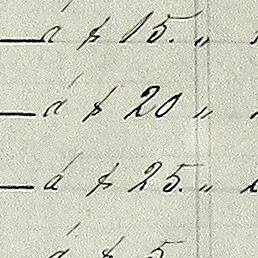 á f 15. "
á f 20 "
á f 25. "
á f 5.